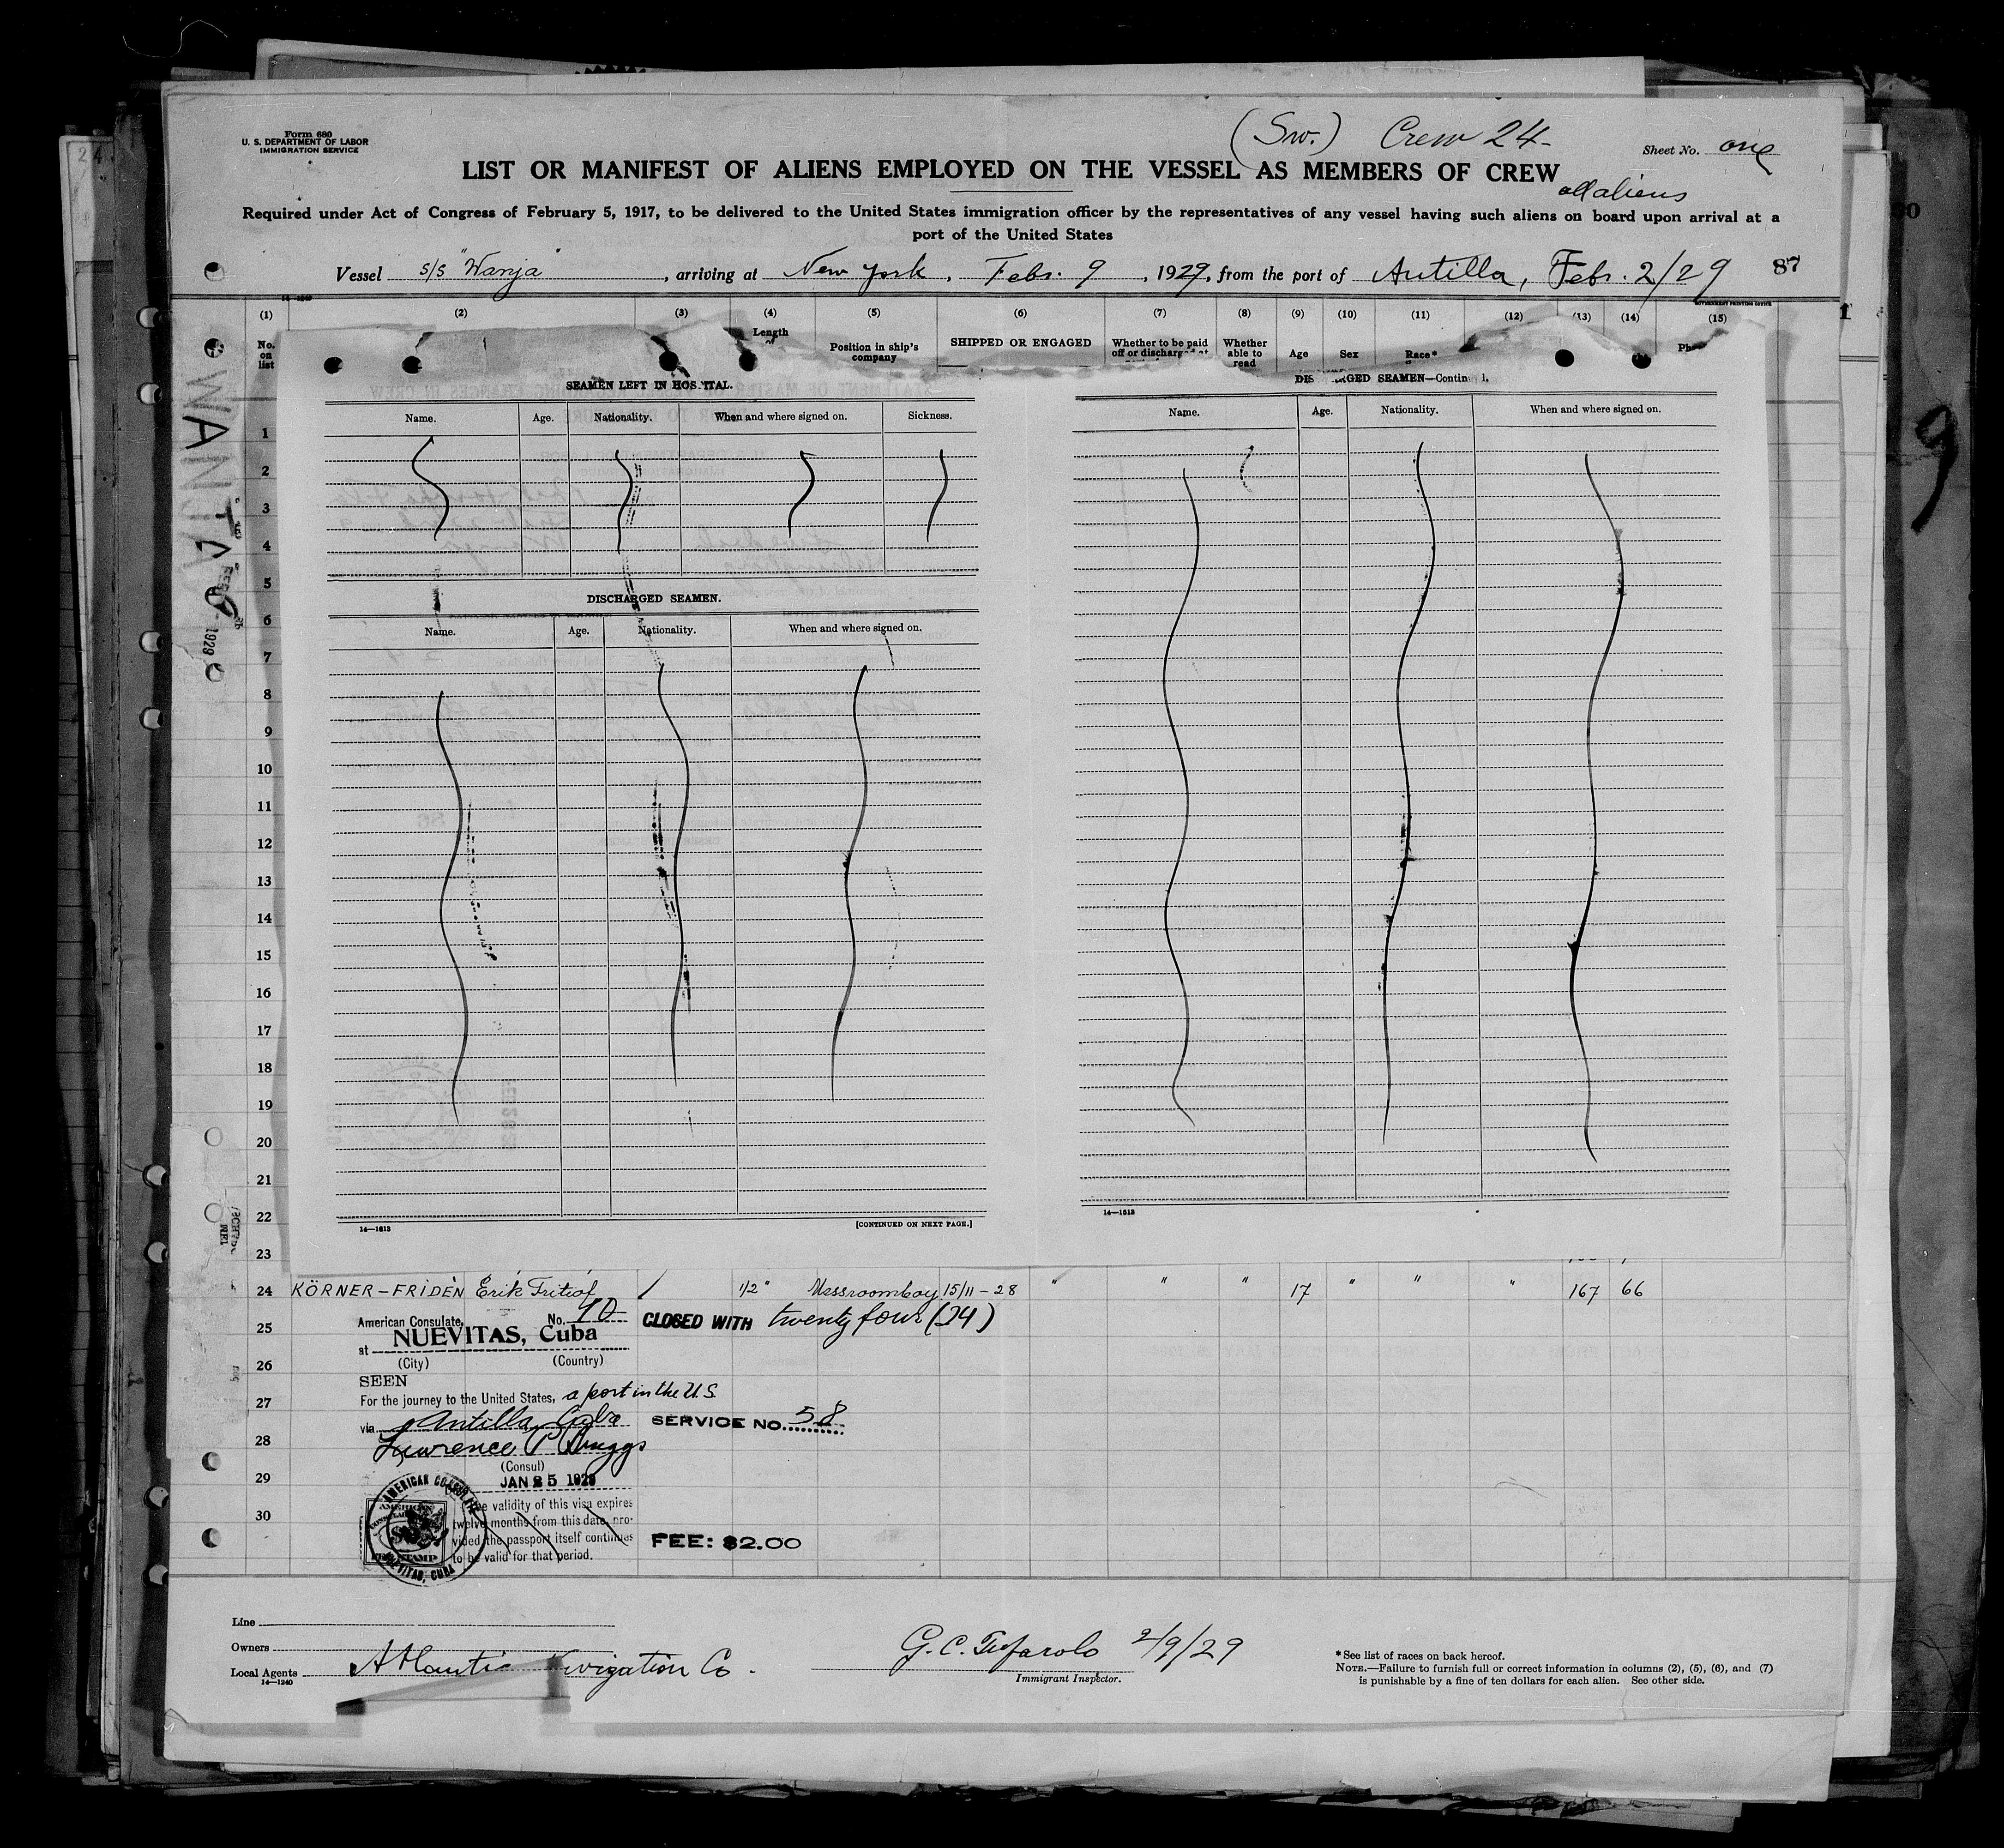 Form 680
U. S. DEPARTMENT OF LABOR
IMMIGRATION SERVICE
(Sw.) Crew 24-
Sheet No. one
LIST OR MANIFEST OF ALIENS EMPLOYED ON THE VESSEL AS MEMBERS OF CREW
all aliens
Required under Act of Congress of February 5, 1917, to be delivered to the United States immigration officer by the representatives of any vessel having such aliens on board upon arrival at a
port of the United States
Vessel s/s "Wanja", arriving at New York, Febr. 9, 1929, from the port of Antilla, Febr. 2/29 87
(1) (2) (3) (4) (5) (6) (7) (8) (9) (10) (11) (12) (13) (14) (15)
No. on list
Length of
Position in ship's company
SHIPPED OR ENGAGED
Whether to be paid off or discharged at
Whether able to read
Age
Sex
Race*
SEAMEN LEFT IN HOSPITAL.
Name. Age. Nationality. When and where signed on. Sickness.
DISCHARGED SEAMEN.
Name. Age. Nationality. When and where signed on.
14—1613
[CONTINUED ON NEXT PAGE.]
DISCHARGED SEAMEN—Continued.
Name. Age. Nationality. When and where signed on.
14—1613
WANJA
1929
9
1
2
3
4
5
6
7
8
9
10
11
12
13
14
15
16
17
18
19
20
21
22
23
24 KÖRNER-FRIDÉN Erik Fritiof / 1/2 " Messroomboy 15/11-28 " " " 17 " " " 167 66
25
26
27
28
29
30
American Consulate, No. 90
at NUEVITAS, Cuba
(City) (Country)
SEEN
For the journey to the United States, a port in the U.S.
via Antilla, Cuba
Lawrence P. Briggs
(Consul)
JAN 25 1929
The validity of this visa expires
twelve months from this date, pro-
vided the passport itself continues
to be valid for that period.
AMERICAN CONSULATE
NUEVITAS, CUBA
CLOSED WITH twenty four (24)
SERVICE NO. 58
FEE: $2.00
Line
Owners
Local Agents Atlantic Navigation Co.
14—1240
G. C. 2/9/29
Immigrant Inspector.
*See list of races on back hereof.
NOTE.—Failure to furnish full or correct information in columns (2), (5), (6), and (7)
is punishable by a fine of ten dollars for each alien. See other side.